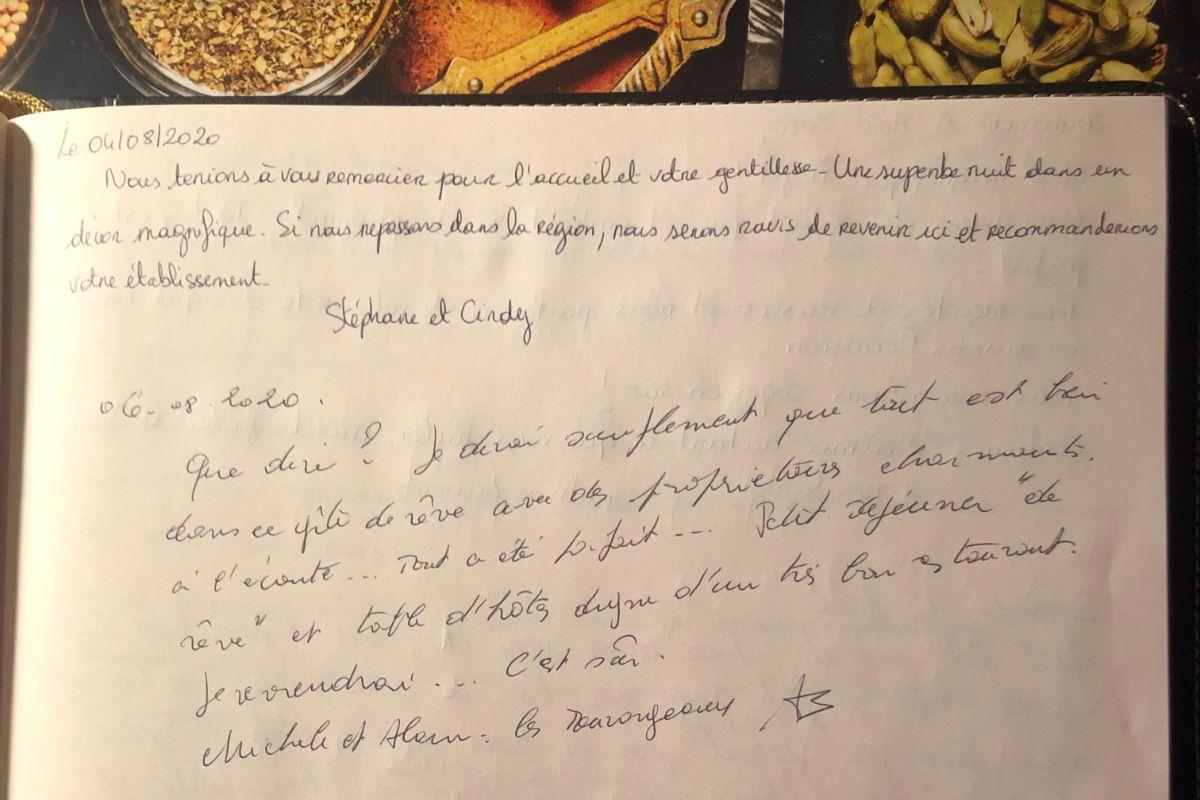 Le 04/08/2020
Nous tenions à vous remercier pour l'accueil et votre gentillesse - Une superbe nuit dans un
décor magnifique. Si nous repassons dans la région, nous serons ravis de revenir ici et recommanderions
votre établissement -
Stéphane et Cindy
06-08.2020.
Que dire ? Je dirai simplement que tout est bien
dans ce gîte de rêve avec des propriétaires charmants.
à l'écoute... Tout a été parfait... Petit déjeuner "de
rêve" et table d'hôtes digne d'un très bon restaurant.
Je reviendrai... C'est sûr.
Michèle et Alain. les Tourangeaux